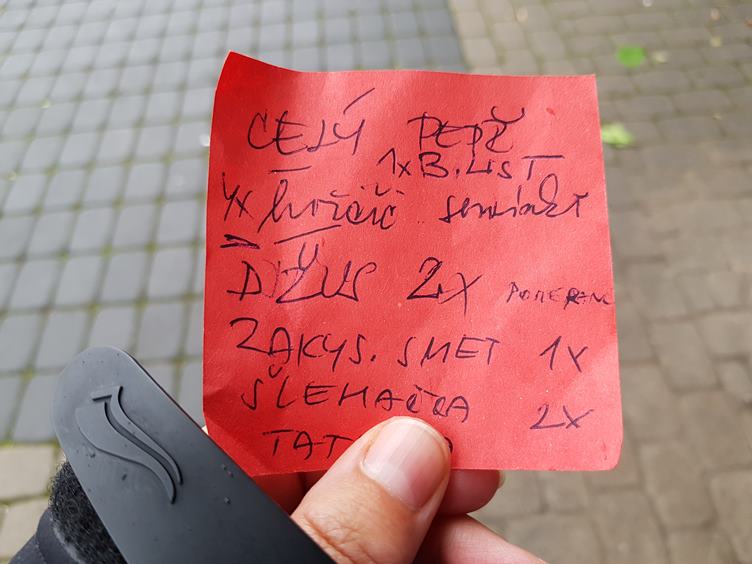 CELÝ PEPŘ
1x B. LIST
4x hořčič semínkt
DŽUS 2x POMERANC
ZAKYS. SMET 1x
ŠLEHAČKA 2x
TAT